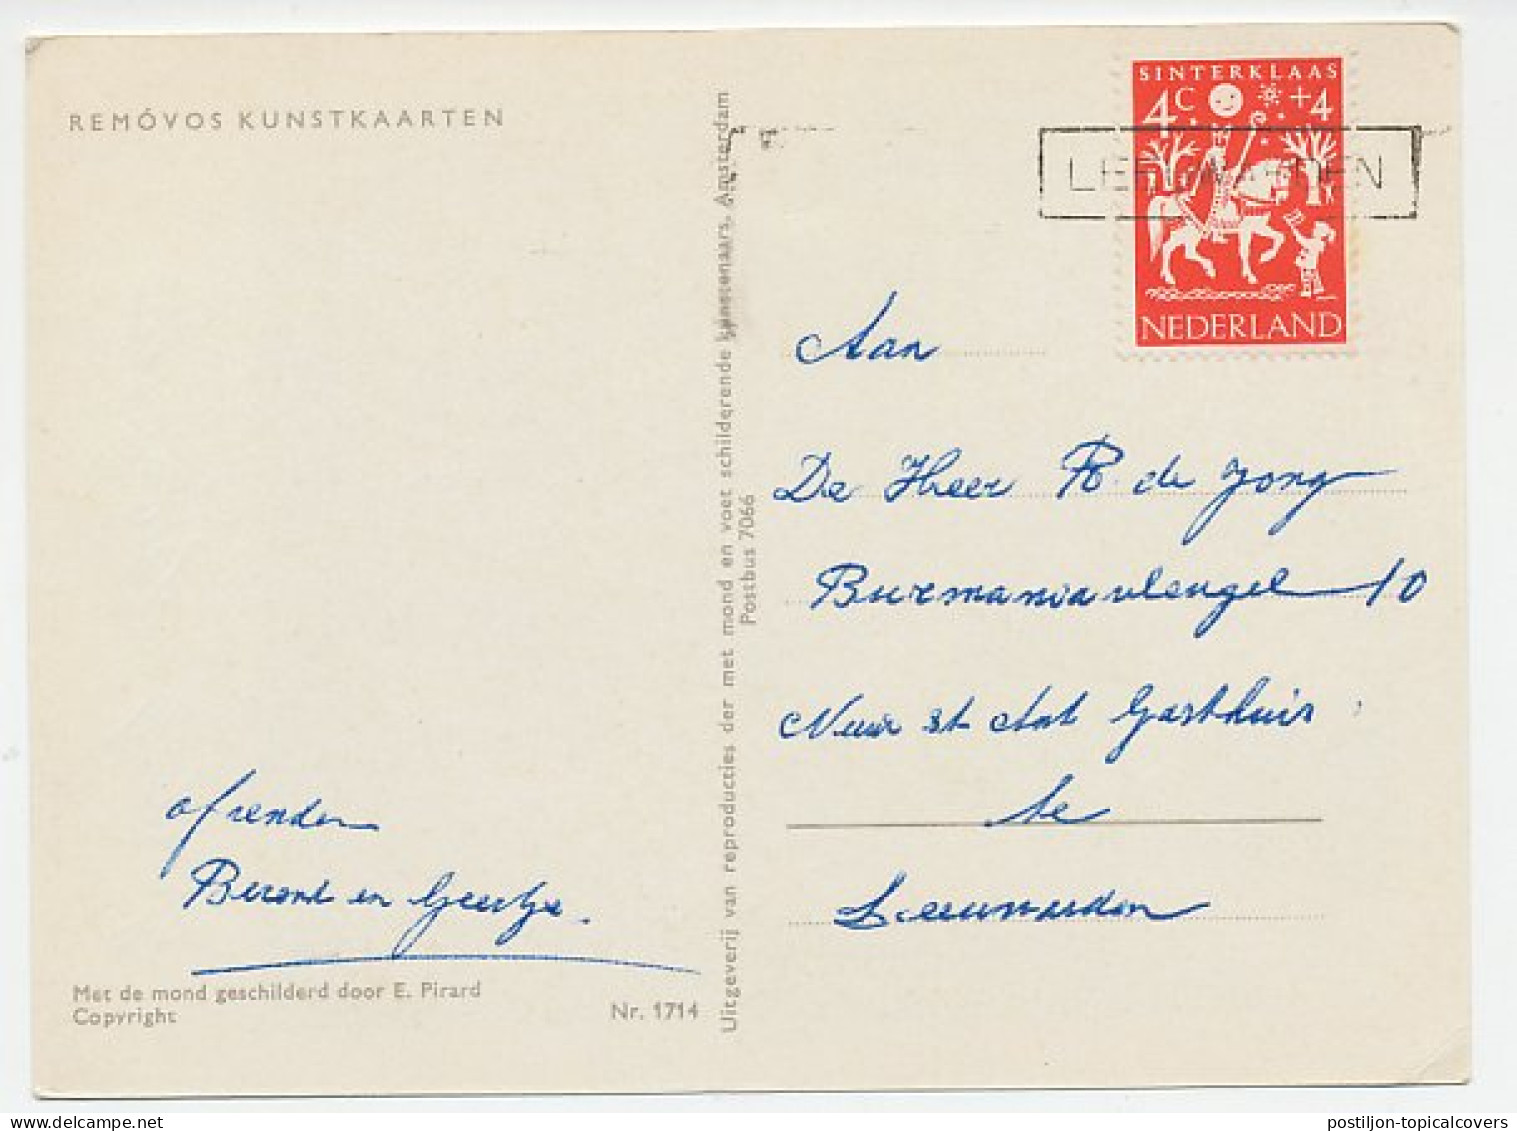 REMÓVOS KUNSTKAARTEN
SINTERKLAAS
4C +4
NEDERLAND
LEEUWARDEN
Aan
De Heer R. de Jong
Burmaniavleugel 10
Nieuw St Ant Gasthuis
te
Leeuwarden
afzender
Berend en Geertje.
Met de mond geschilderd door E. Pirard
Copyright
Nr. 1714
Uitgeverij van reproducties der met mond en voet schilderende kunstenaars, Amsterdam
Postbus 7066
postiljon-topicalcovers